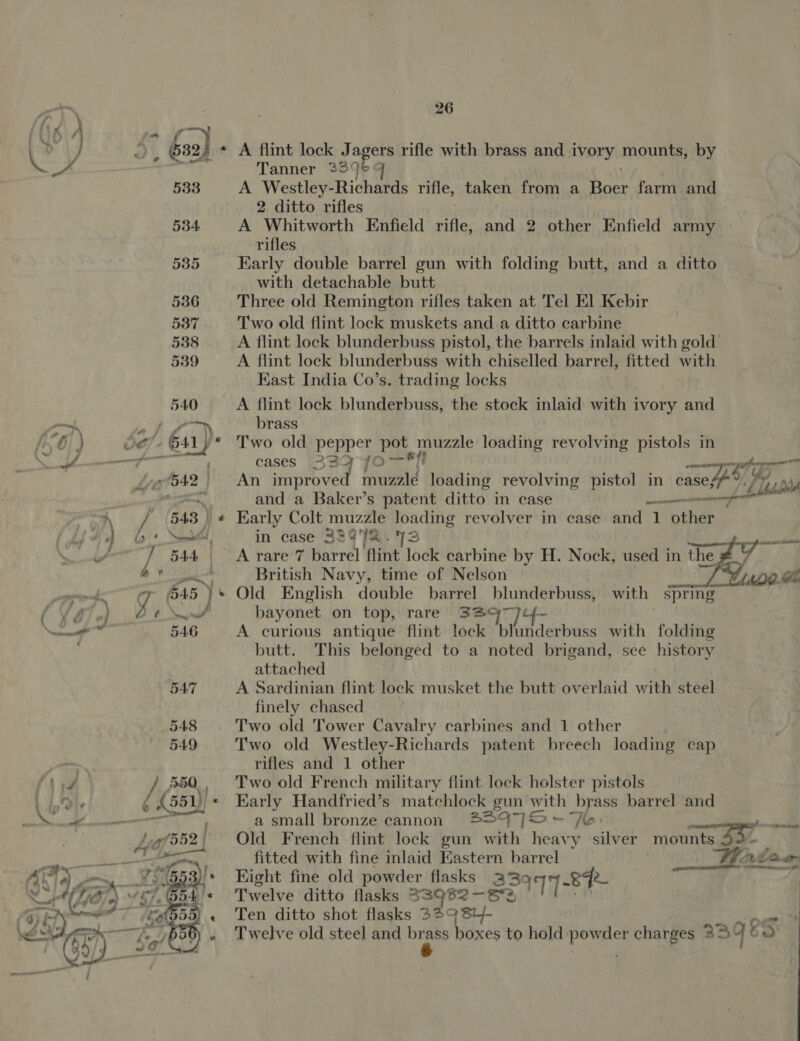 26
532 A flint lock Jagers rifle with brass and ivory mounts, by
Tanner 33969
533 A Westley-Richards rifle, taken from a Boer farm and
2 ditto rifles
534 A Whitworth Enfield rifle, and 2 other Enfield army
rifles
535 Early double barrel gun with folding butt, and a ditto
with detachable butt
536 Three old Remington rifles taken at Tel El Kebir
537 Two old flint lock muskets and a ditto carbine
538 A flint lock blunderbuss pistol, the barrels inlaid with gold
539 A flint lock blunderbuss with chiselled barrel, fitted with
East India Co's. trading locks
540 A flint lock blunderbuss, the stock inlaid with ivory and
brass
541 Two old pepper pot muzzle loading revolving pistols in
cases
542 An improved muzzle loading revolving pistol in case
and a Baker's patent ditto in case
543 Early Colt muzzle loading revolver in case and 1 other
in case
544 A rare 7 barrel flint lock carbine by H. Nock, used in the
British Navy, time of Nelson
545 Old English double barrel blunderbuss, with spring
bayonet on top, rare 33974
546 A curious antique flint lock blunderbuss with folding
butt. This belonged to a noted brigand, see history
attached
547 A Sardinian flint lock musket the butt overlaid with steel
finely chased
548 Two old Tower Cavalry carbines and 1 other
549 Two old Westley-Richards patent breech loading cap
rifles and 1 other
550 Two old French military flint lock holster pistols
551 Early Handfried's matchlock gun with brass barrel and
a small bronze cannon 33975-76.
552 Old French flint lock gun with heavy silver mounts
fitted with fine inlaid Eastern barrel
553 Eight fine old powder flasks
554 Twelve ditto flasks
555 Ten ditto shot flasks 33984
556 Twelve old steel and brass boxes to hold powder charges 33985